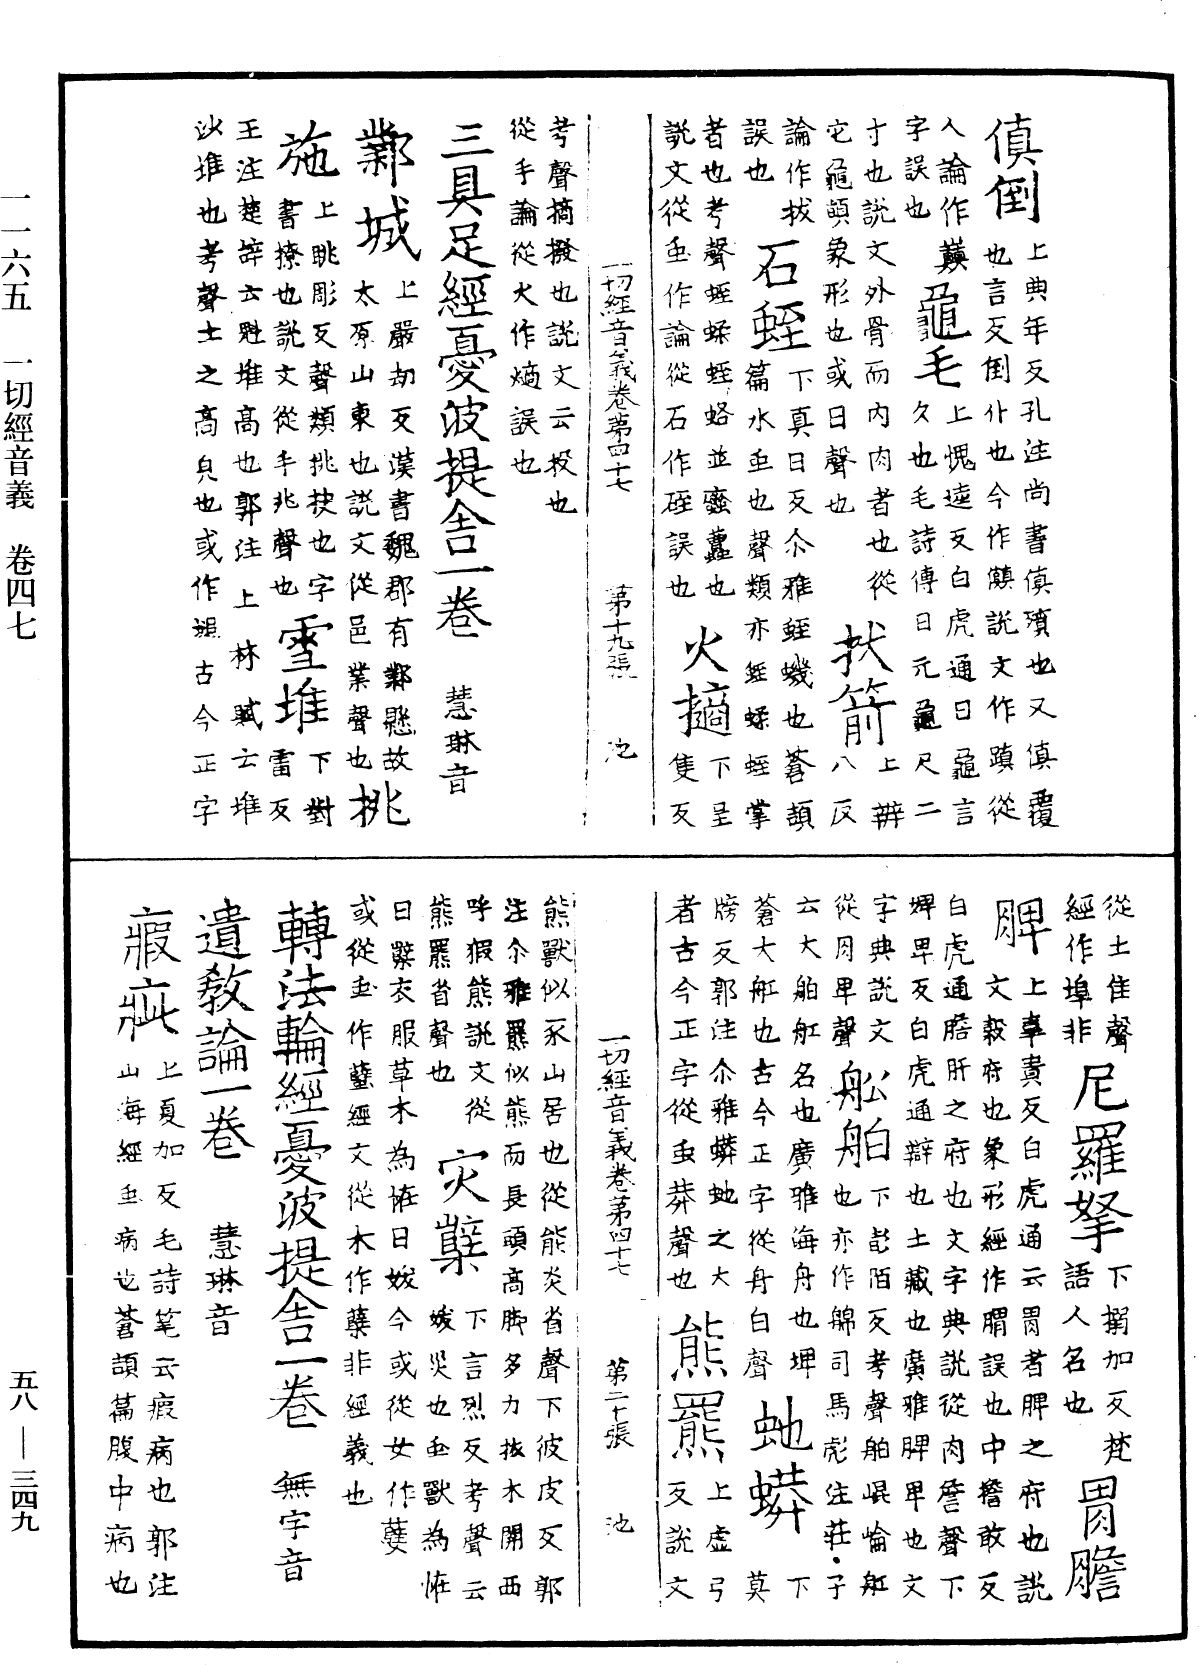 傎倒上典年反孔注尚書傎殞也又傎覆
也言反倒仆也今作顛說文作蹎從
人論作蹎龜毛上愧逵反白虎通曰龜言
字誤也久也毛詩傳曰元龜尺二
寸也說文外骨而內肉者也從
它龜頭象形也或曰聲也拔箭上辨八反
論作拔
誤也石蛭下真日反尒雅蛭蟣也蒼頡
篇水虫也聲類亦蛭蝚蛭掌
者也考聲蛭蝚蛭蛒並蠹䘍也
說文從虫作論從石作硾誤也火擿下呈隻反
一切經音義卷第四十七 第十九張 池
考聲擿撥也說文云投也
從手論從火作熵誤也
三具足經憂波提舍一卷 慧琳音
鄴城上嚴劫反漢書魏郡有鄴懸故
太原山東也說文從邑業聲也挑
施上眺彫反聲類挑抉也字
書撩也說文從手兆聲也雪堆下對雷反
王注楚辝云魁堆高也郭注上林賦云堆
沙堆也考聲土之高皃也或作塠古今正字
從土隹聲
經作埠非尼羅拏下搦加反梵語人名也胃膽
上韋貴反白虎通云胃者脾之府也說
文穀府也象形經作䏽誤也中擔敢反
白虎通膽肝之府也文字典說從肉詹聲下
脾婢卑反白虎通辯也土藏也廣雅脾卑也文
字典說文
從肉卑聲舩舶下彭陌反考聲舶崐崘舩
也亦作䑺司馬彪注莊子
云大舶舡名也廣雅海舟也埤
蒼大舡也古今正字從舟白聲虵蟒上虛弓下莫
牓反郭注尒雅蟒虵之大
者古今正字從虫莽聲也熊羆反說文
熊獸似豕山居也從能炎省聲下彼皮反郭
注尒雅羆似熊而長頭高脚多力拔木關西
呼猳熊說文從
熊罷省聲也灾櫱下言烈反考聲云
媛災也虫獸為恠
曰櫱衣服草木為恠曰媛今或從女作㜸
或從虫作蠥經文從木作蘖非經義也
轉法輪經憂波提舍一卷 無字音
遺教論一卷 慧琳音
瘕疵上夏加反毛詩箋云瘕病也郭注
山海經虫病也蒼頡篇腹中病也
一切經音義卷第四十七 第二十張 池
一一六五 一切經音義 卷四七
五八—三四九